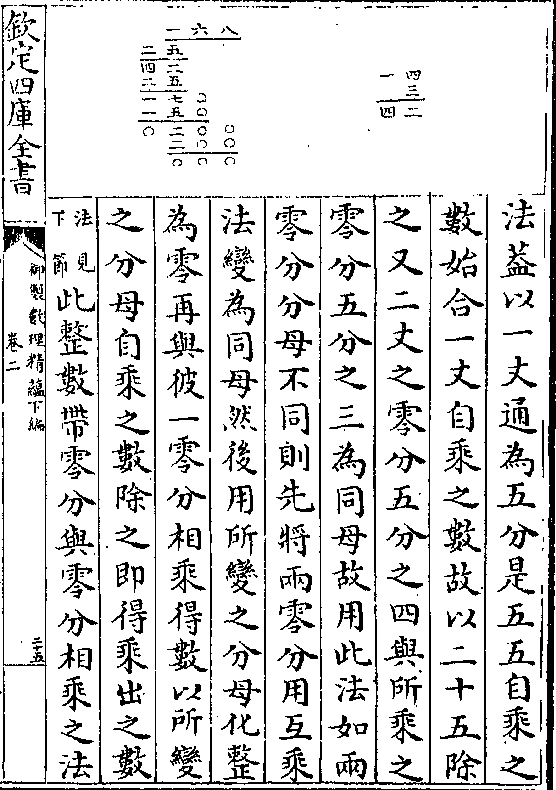 一四
三
四二
一六八
二五
四二
二五
一七〇
一五〇
〇二〇〇
二〇〇
〇〇〇
法葢以一丈通為五分是五五自乘之
數始合一丈自乘之數故以二十五除
之又二丈之零分五分之四與所乘之
零分五分之三為同母故用此法如兩
零分分母不同則先將兩零分用互乘
法變為同母然後用所變之分母化整
為零再與彼一零分相乘得數以所變
之分母自乘之數除之即得乘出之數
法見下節此整數帶零分與零分相乘之法
欽定四庫全書
御製數理精藴下編
卷二
二十五